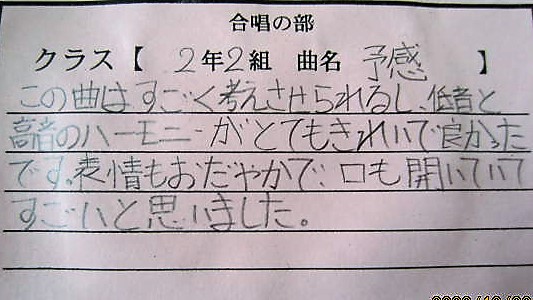 合唱の部
クラス【 2年2組 曲名 予感 】
この曲はすごく考えさせられるし、低音と
高音のハーモニーがとてもきれいで良かった
です。表情もおだやかで、口も開いていて
すごいと思いました。